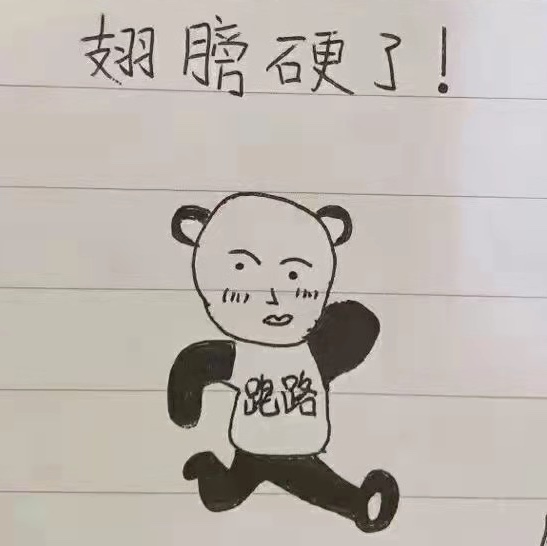 翅膀硬了!
跑路